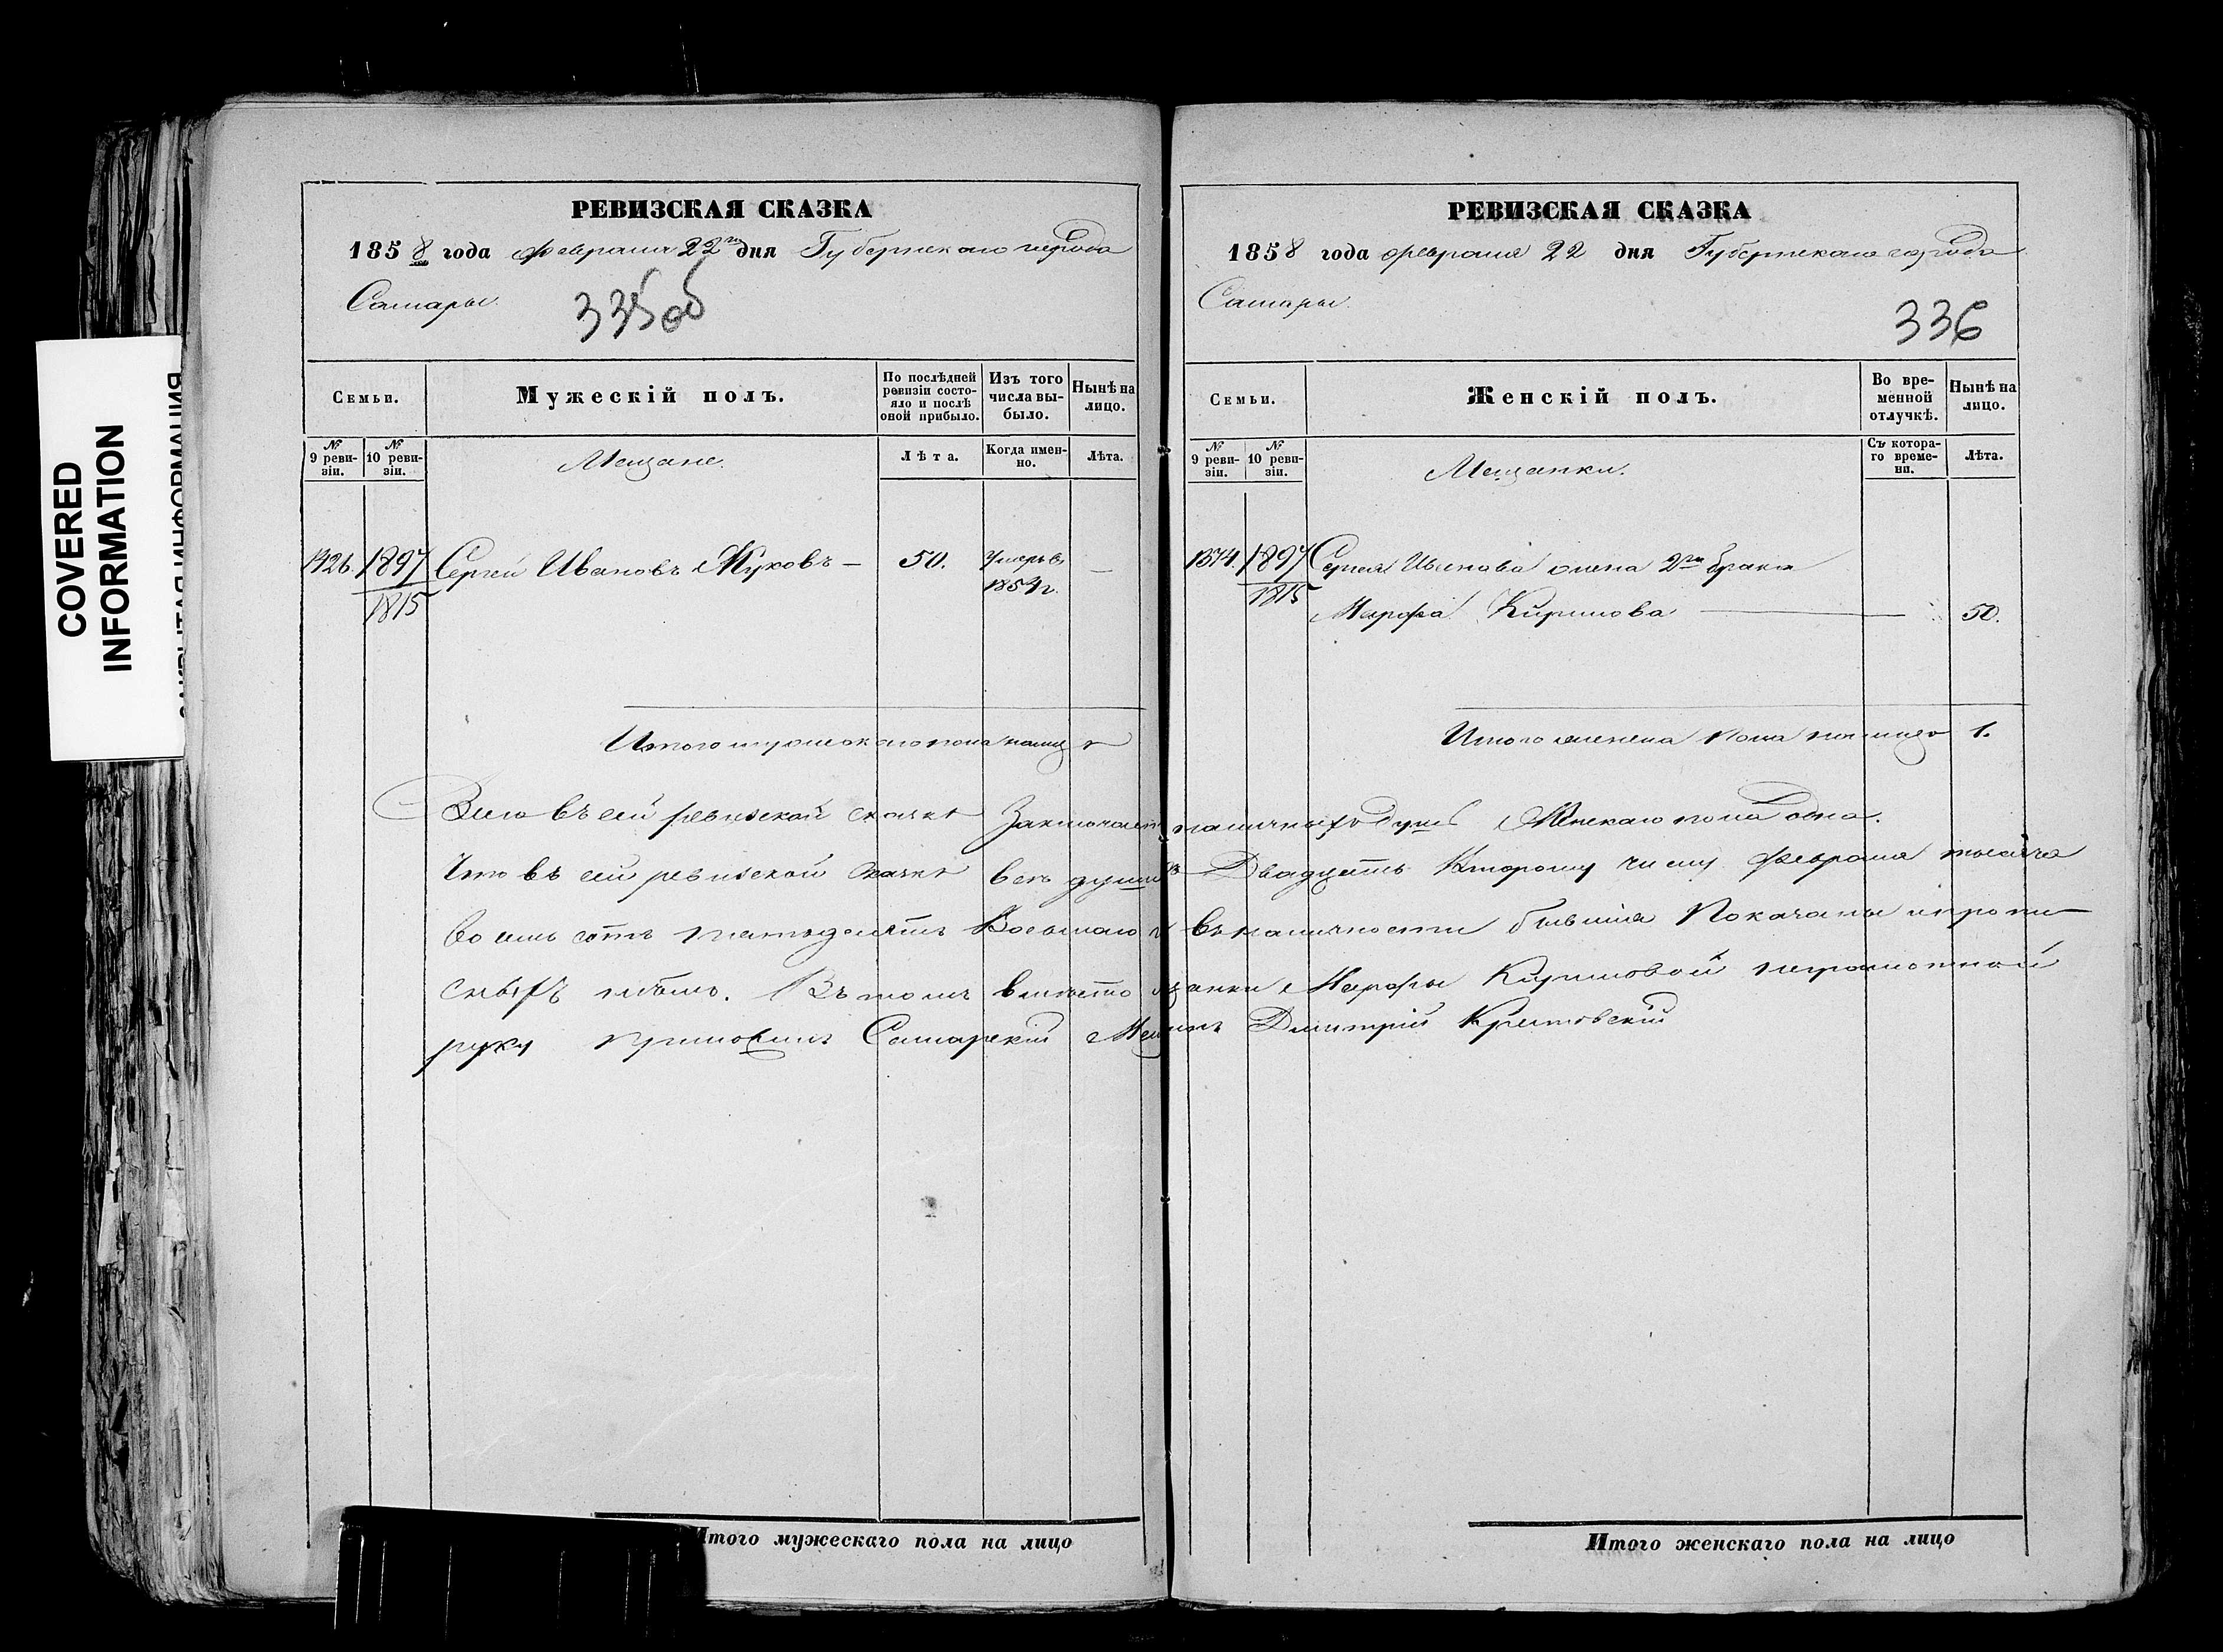 COVERED
INFORMATION
РЕВИЗСКАЯ СКАЗКА
1858 года февраля 22го дня Губернскаго города
Самары
335об
Семьи.
Мужескій полъ.
По послѣдней ревизіи состо-
яло и послѣ оной прибыло.
Изъ того числа вы-
было.
Нынѣ на лицо.
№ 9 реви-
зіи.
№ 10 реви-
зіи.
Мещане.
Лѣта.
Когда имен-
но.
Лѣта.
1426. 1897 Сергей Ивановъ Жуковъ — 50. Умеръ въ —
1815 1854 г.
Итого мужескаго пола на лицо
РЕВИЗСКАЯ СКАЗКА
1858 года февраля 22 дня Губернскаго города
Самары
336
Семьи.
Женскій полъ.
Во вре-
менной отлучкѣ.
Нынѣ на лицо.
№ 9 реви-
зіи.
№ 10 реви-
зіи.
Мещанки.
Съ котора-
го време-
ни.
Лѣта.
1374. 1897 Сергея Иванова жена 2го брака
1815 Марфа Кирилова — 50.
Итого женска пола на лицо 1.
Всего въ сей ревизской сказке заключает наличныхъ душъ Женскаго пола одна.
Что въ сей ревизской сказке все души Двадцать второму числу февраля тысяча
восемь сотъ пятьдесятъ Восьмаго въ наличности бывшія Показаны и
Въ томъ вместо Марфы Кириловой неграмотной
руку приложилъ Самарскій Дмитрій
Итого мужескаго пола на лицо
Итого женскаго пола на лицо